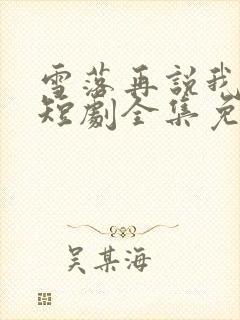 雪落再説我
短劇全集免
吴某海